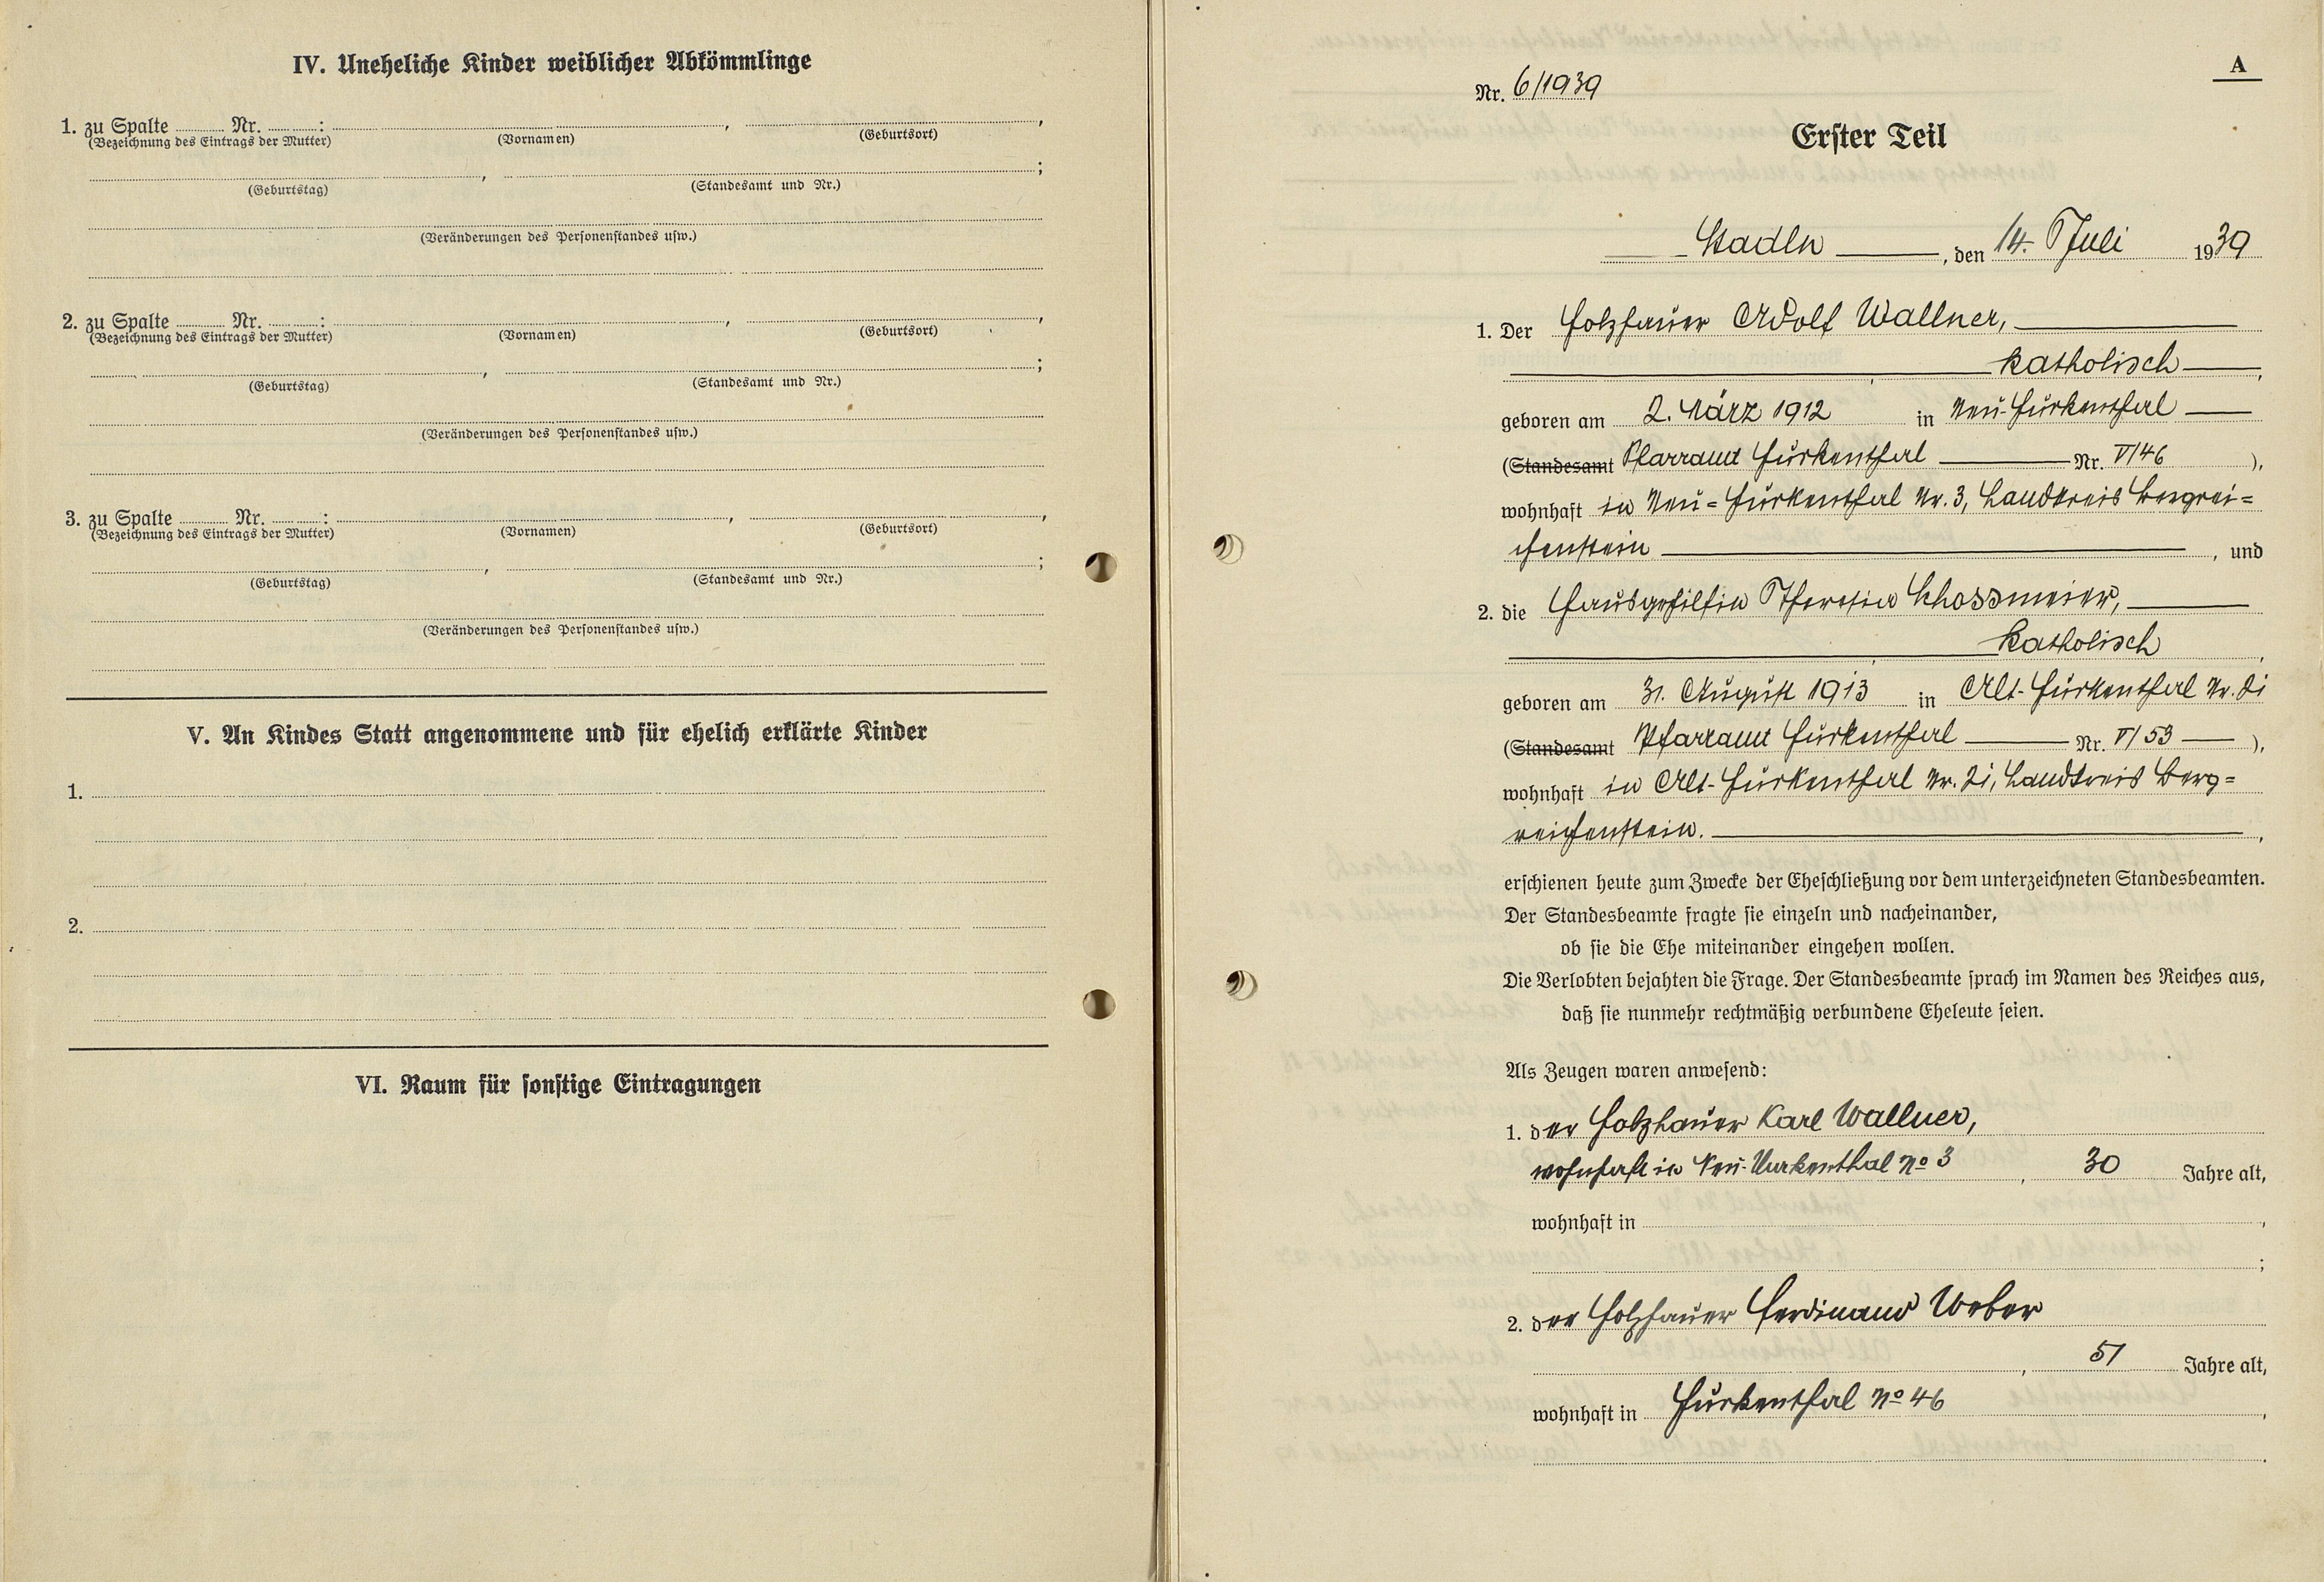 IV. Uneheliche Kinder weiblicher Abkömmlinge
1. zu Spalte Nr. : , ,
(Bezeichnung des Eintrags der Mutter) (Vornamen) (Geburtsort)
, ;
(Geburtstag) (Standesamt und Nr.)
(Veränderungen des Personenstandes usw.)
2. zu Spalte Nr. : , ,
(Bezeichnung des Eintrags der Mutter) (Vornamen) (Geburtsort)
, ;
(Geburtstag) (Standesamt und Nr.)
(Veränderungen des Personenstandes usw.)
3. zu Spalte Nr. : , ,
(Bezeichnung des Eintrags der Mutter) (Vornamen) (Geburtsort)
, ;
(Geburtstag) (Standesamt und Nr.)
(Veränderungen des Personenstandes usw.)
V. An Kindes Statt angenommene und für ehelich erklärte Kinder
1.
2.
VI. Raum für sonstige Eintragungen
A
Nr. 6/1939
Erster Teil
Stadln, den 14. Juli 1939
1. Der Holzhauer Adolf Wallner,
katholisch,
geboren am 2. März 1912 in Neu-Hurkenthal
(Standesamt Pfarramt Hurkenthal Nr. V/46),
wohnhaft in Neu=Hurkenthal Nr. 3, Landkreis Bergrei=
chenstein, und
2. die Hausgehilfin Theresia Schossmeier,
katholisch,
geboren am 31. August 1913 in Alt-Hurkenthal Nr. 21
(Standesamt Pfarramt Hurkenthal Nr. V/53),
wohnhaft in Alt-Hurkenthal Nr. 21, Landkreis Berg=
reichenstein.,
erschienen heute zum Zwecke der Eheschließung vor dem unterzeichneten Standesbeamten.
Der Standesbeamte fragte sie einzeln und nacheinander,
ob sie die Ehe miteinander eingehen wollen.
Die Verlobten bejahten die Frage. Der Standesbeamte sprach im Namen des Reiches aus,
daß sie nunmehr rechtmäßig verbundene Eheleute seien.
Als Zeugen waren anwesend:
1. der Holzhauer Karl Wallner,
wohnhaft in Neu-Hurkenthal No 3, 30 Jahre alt,
wohnhaft in ,
;
2. der Holzhauer Ferdinand Weber
, 51 Jahre alt,
wohnhaft in Hurkenthal No 46,
.